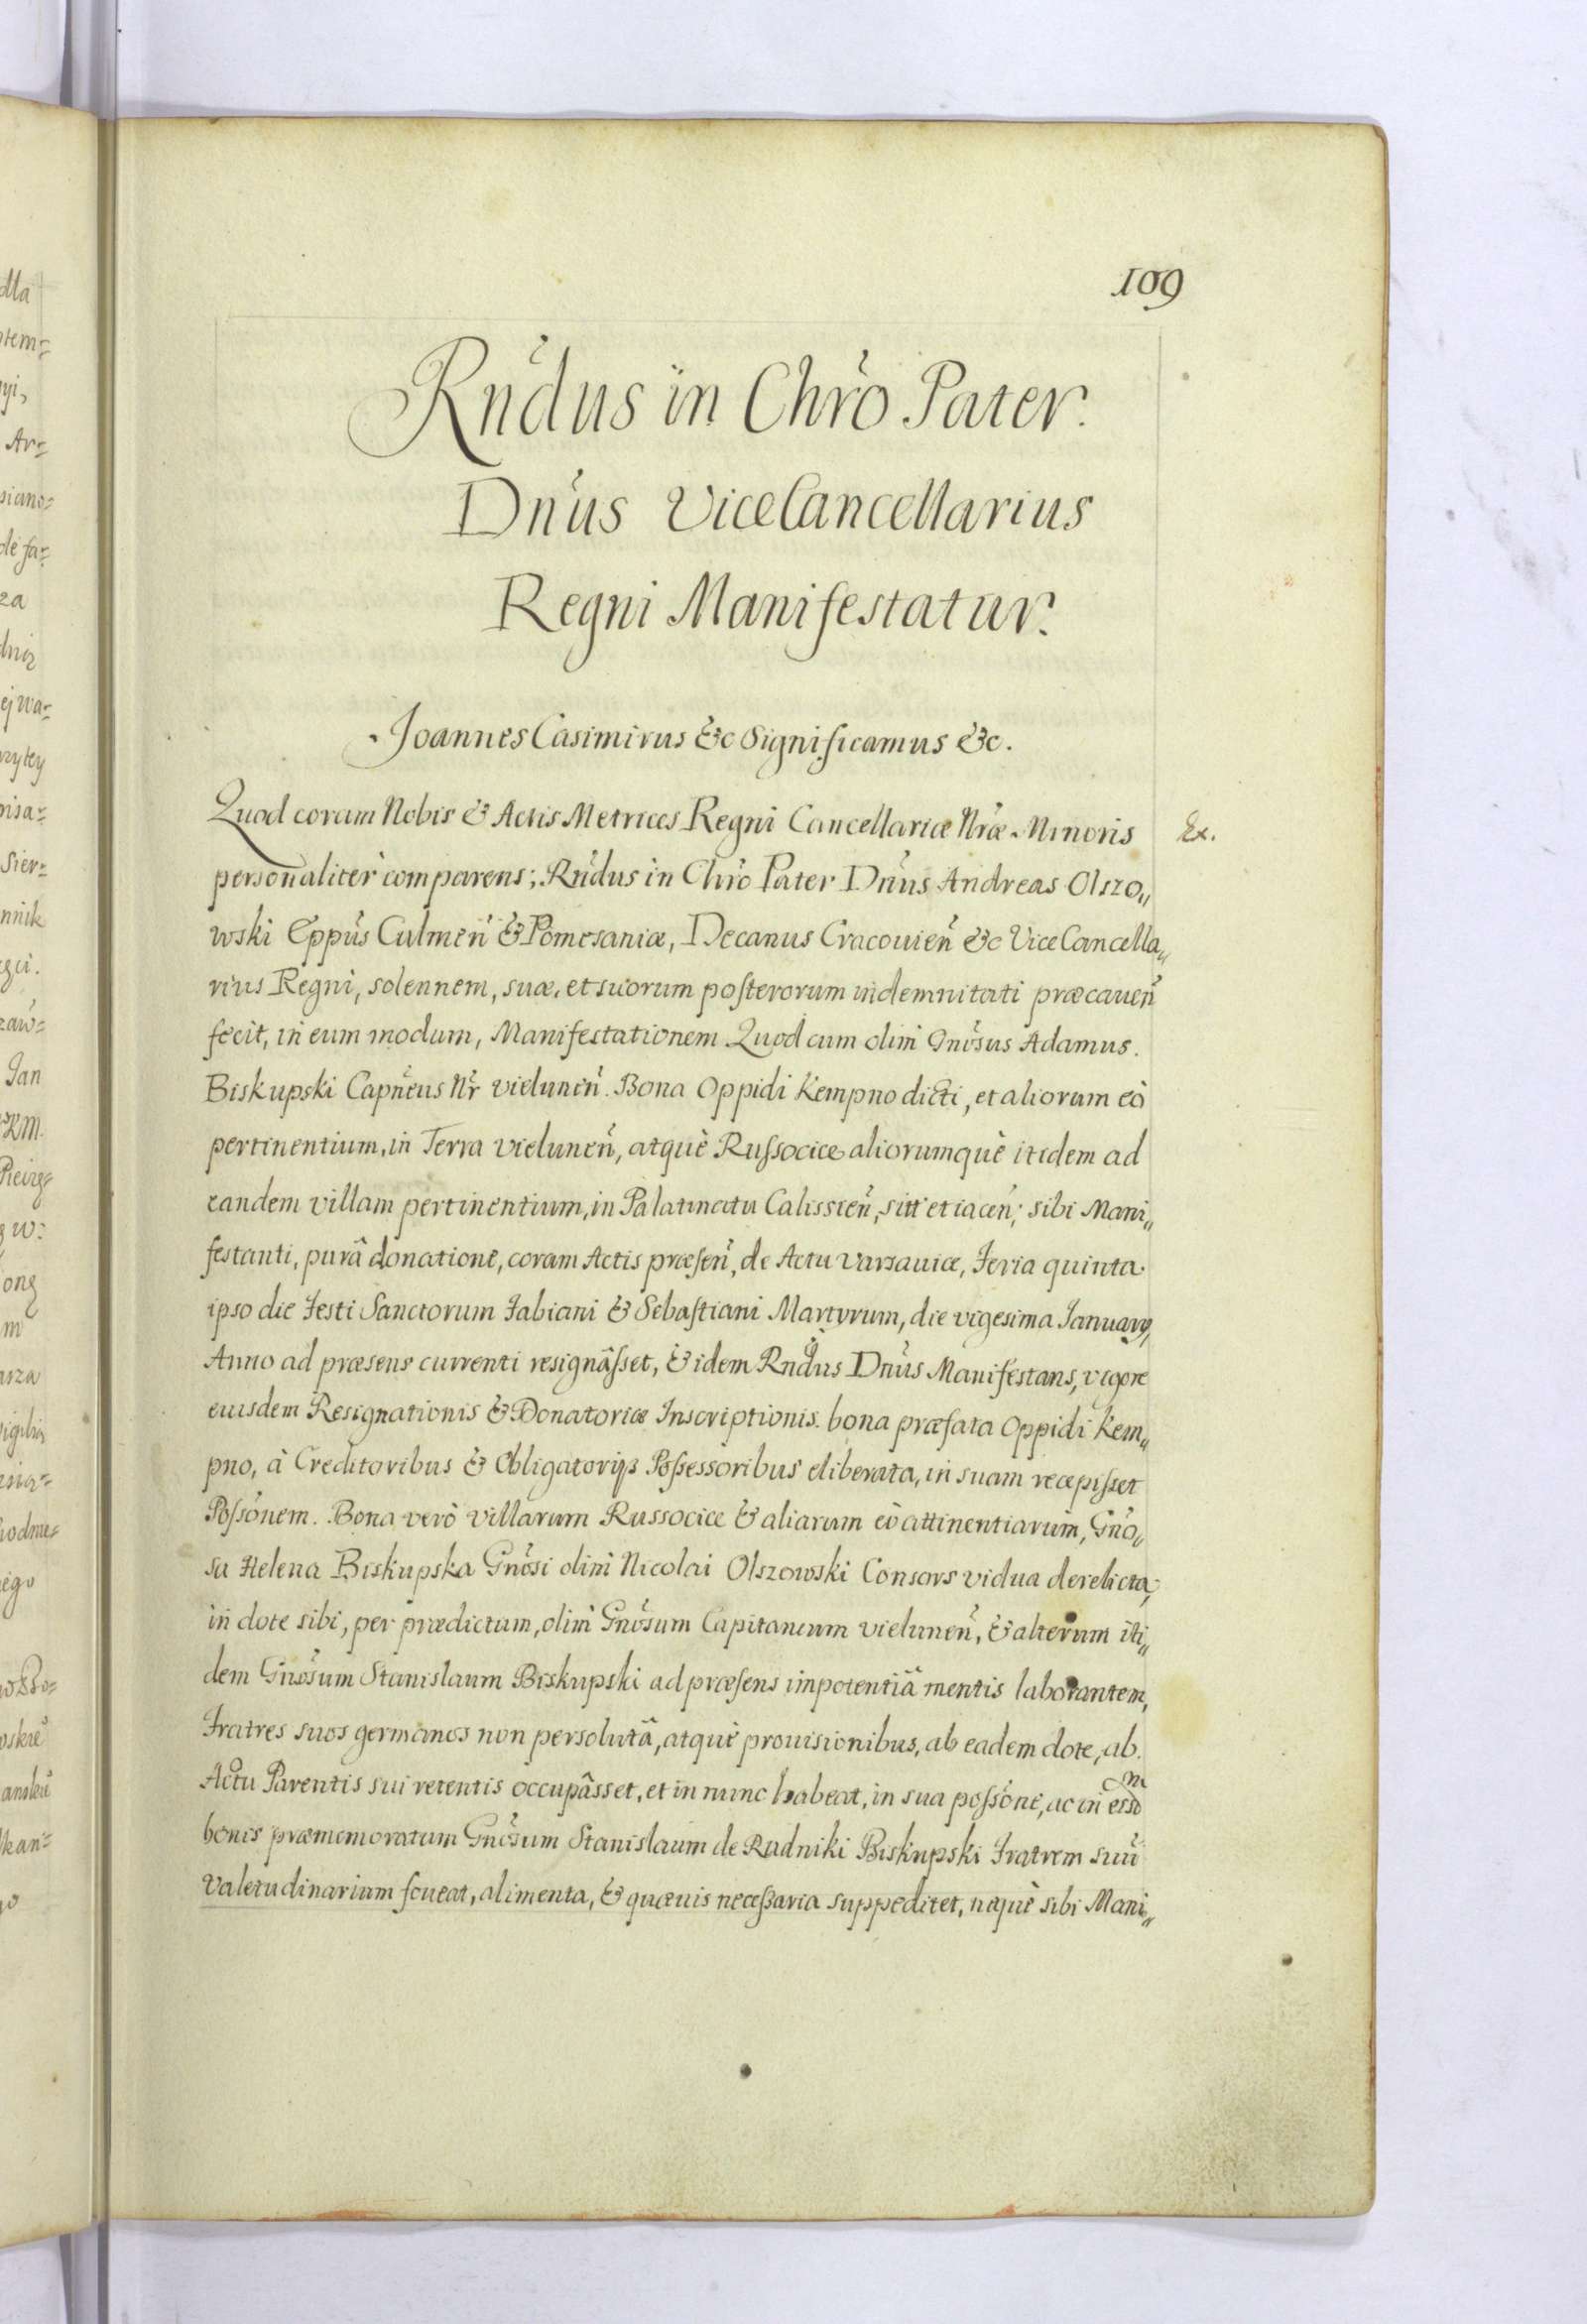 109
Rńdus in Chŕo Pater.
Dńus ViceCancellarius
Regni Manifestatur.
Joannes Casimirus &c Significamus &c.
Quod coram Nobis & Actis Metrices Regni Cancellariæ Nŕæ Minoris
Ex.
personalitèr comparens; Rńdus in Chŕo Pater Dńus Andreas Olszo„
wski Eppús Culmeń & Pomesaniæ, Decanus Cracouień &c ViceCancella„
rius Regni, solennem, suæ, et suorum posterorum indemnitati præcaueń
fecit, in eum modum, Manifestationem Quod cum olim Gnósus Adamus.
Biskupski Capńeus Nŕ vieluneń. Bona Oppidi Kempno dicti, et aliorum eò
pertinentium, in Terra vieluneń, atquè Russocice aliorumquè itidem ad
eandem villam pertinentium, in Palatinatu Calissień, sitt et iaceń; sibi Mani„
festanti, purâ donatione, coram Actis præseń, de Actu Varsauiæ, Feria quinta
ipso die Festi Sanctorum Fabiani & Sebastiani Martyrum, die vigesima January,
Anno ad præsens currenti resignâsset, & idem Rndús Dńus Manifestans, vigore
eiusdem Resignationis & Donatoriæ Inscriptionis. bona præfata Oppidi Kem„
pno, à Creditoribus & Obligatorijs Possessoribus eliberata, in suam recepisset
Possónem. Bona verò villarum Russocice & aliarum eò attinentiarum, Gnó„
sa Helena Biskupska Gnósi olim Nicolai Olszowski Consors vidua derelicta,
in dote sibi, per prædictum, olim Gnósum Capitaneum vieluneń, & alterum iti„
dem Gnósum Stanislaum Biskupski ad præsens impotentiâ mentis laborantem,
Fratres suos germanos non persolutâ, atquè prouisionibus, ab eadem dote, ab.
Actu Parentis sui retentis occupâsset, et in nunc habeat, in sua possóne, ac in eisd
m
bonis præmemoratum Gnósum Stanislaum de Rudniki Biskupski Fratrem suū
valetudinarium foueat, alimenta, & quæuis necessaria suppeditet, nequè sibi Mani„